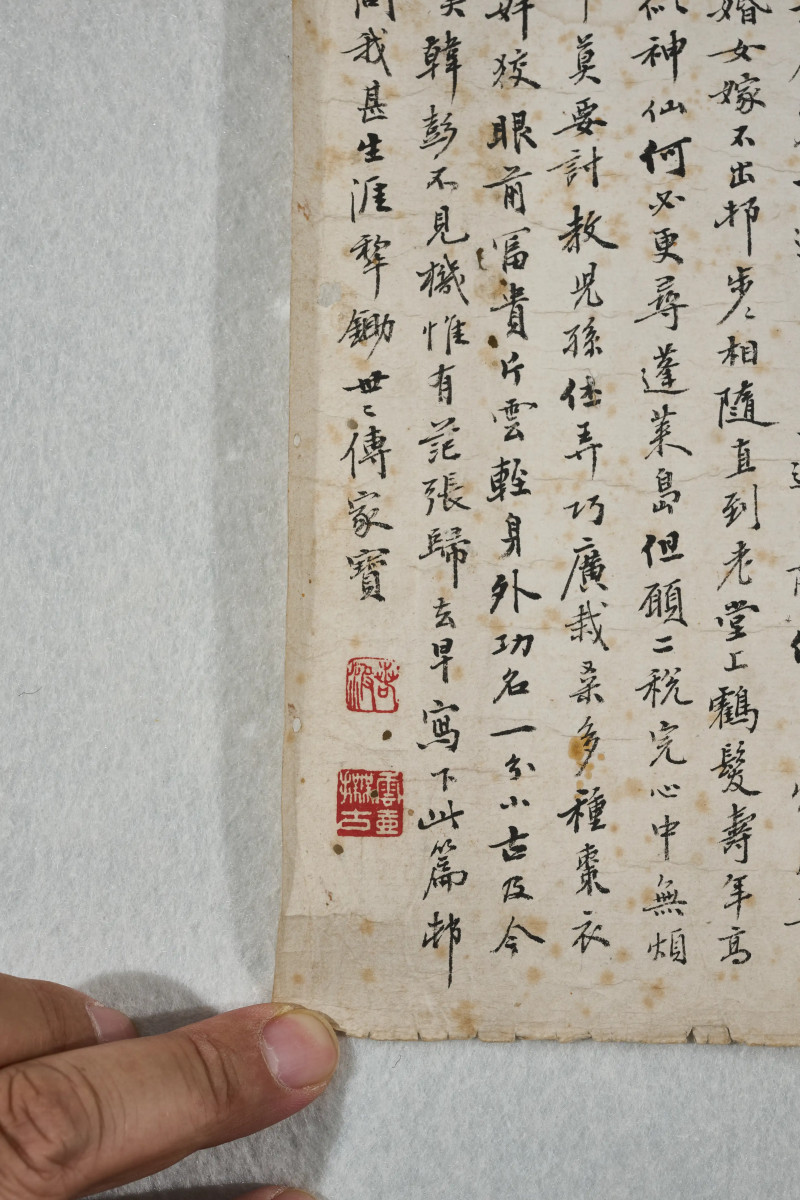 婚女嫁不出邨步〻相隨直到老堂上鶴髮壽年高
似神仙何必更尋蓬萊島但願二稅完心中無煩
莫要討教兒孫休弄巧廣栽桑多種棗衣
奸狡眼前富貴片雲輕身外功名一分小古及今
韓彭不見機惟有范張歸去早寫下此篇邨
問我甚生涯犂鋤世〻傳家寶
若波
雲壺撫古